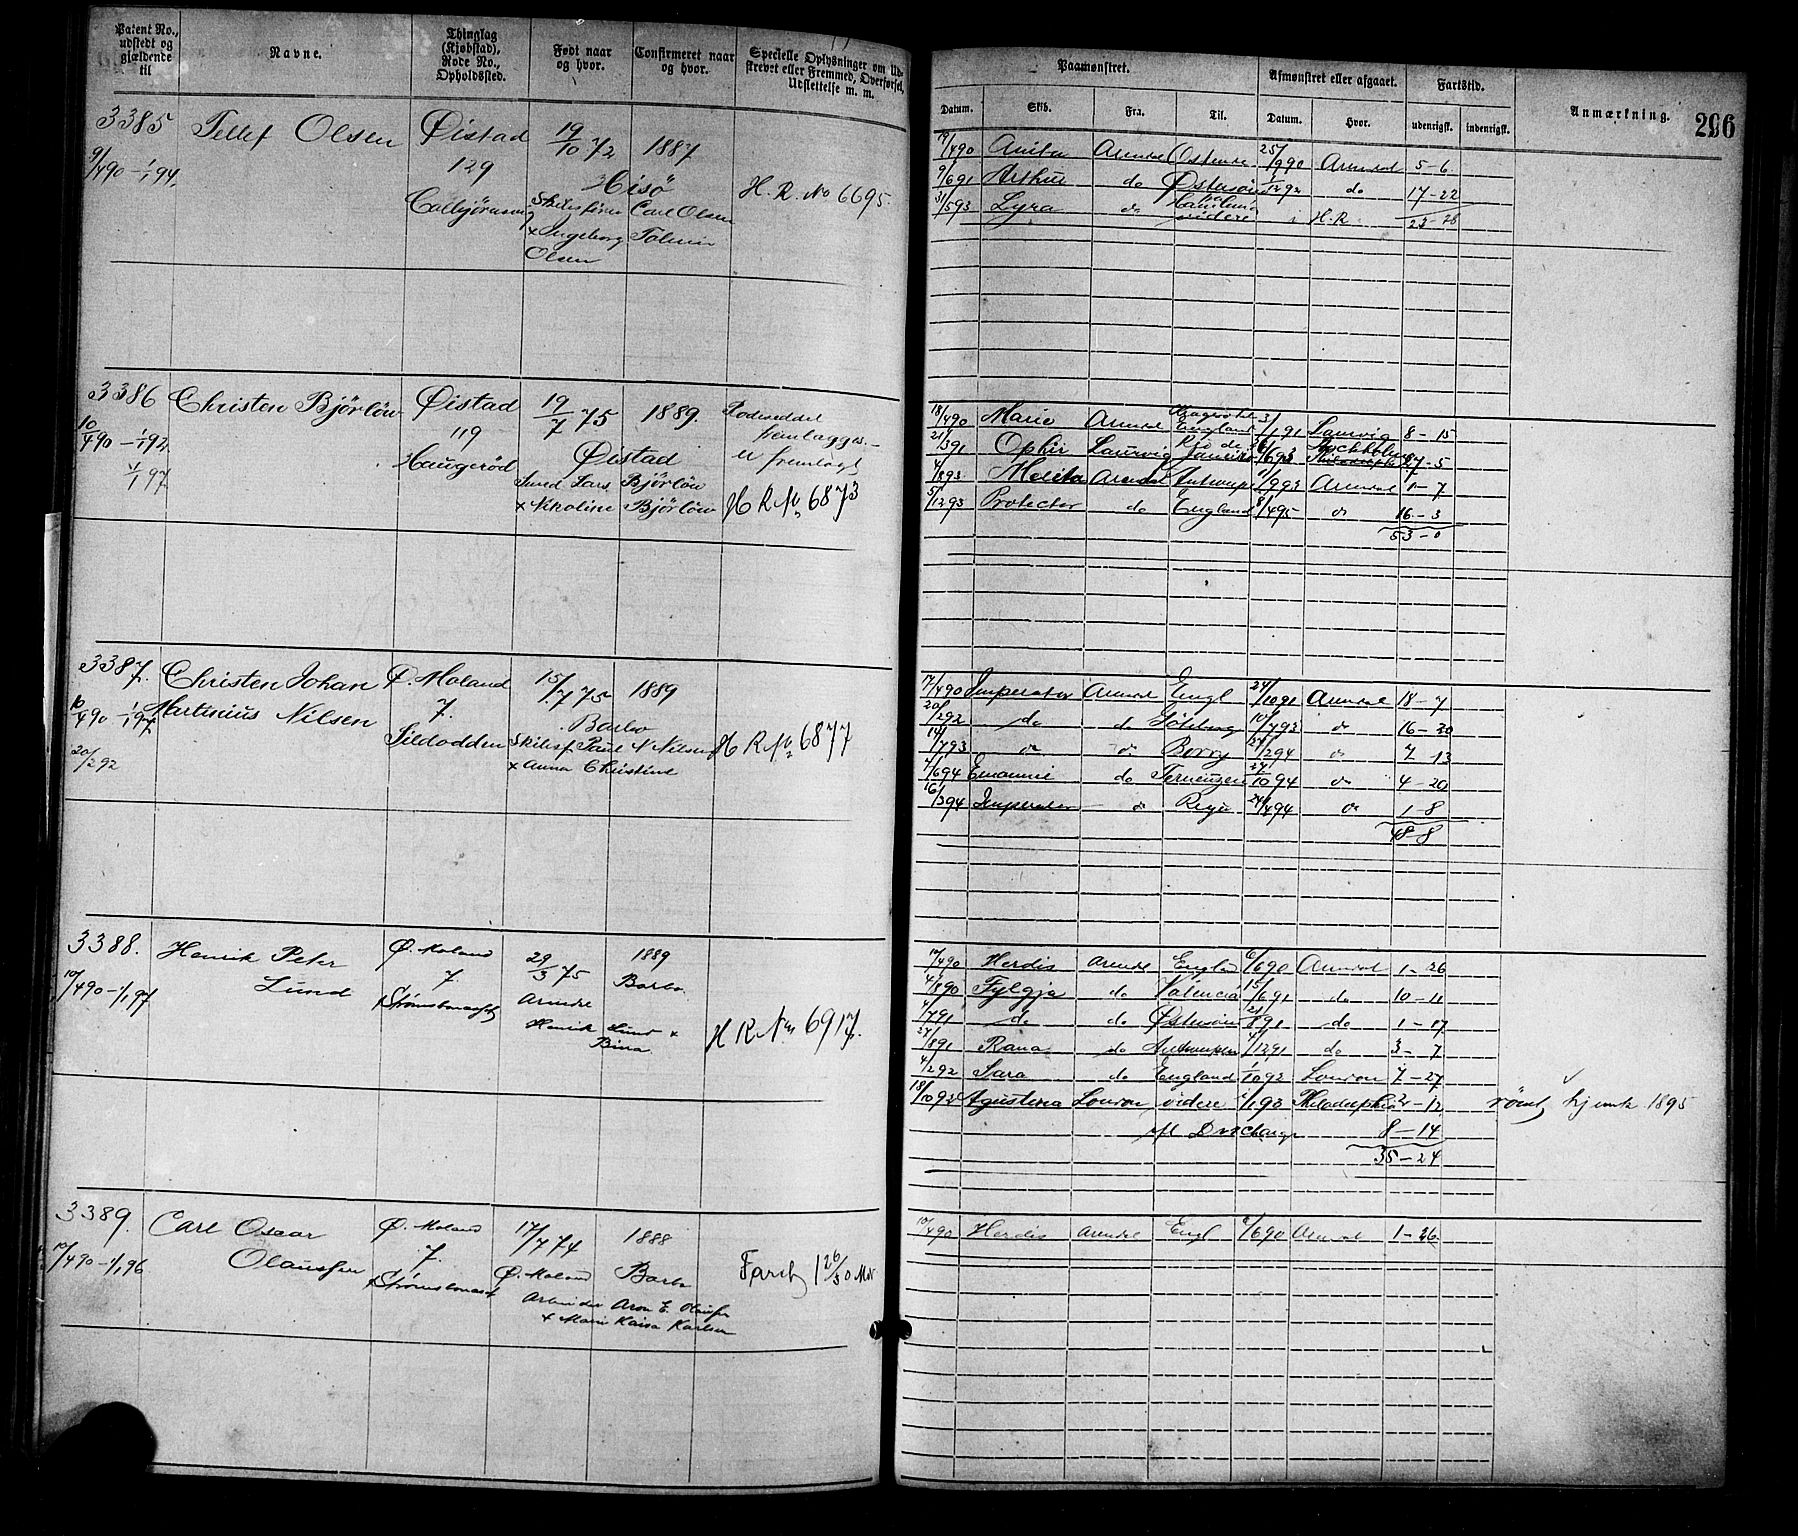 Patent No., udstedt og gjældende til
Navne.
Thinglag (Kjøbstad), Rode No., Opholdssted.
Født naar og hvor.
Confirmeret naar og hvor.
Specielle Oplysninger om Ud-
strevet eller Fremmed, Overførsel,
Udslettelse m. m.
3385 Tellef Olsen Øistad 19/10 72 1887
9/4 90 - 1/1 94. 129 Hisø H. R. No 6695.
Colbjørnsen Skibsfører Carl Olsen
x Ingeborg
Olsen
3386 Christen Bjørløw Øistad 19/7 75 1889. Rodeseddel
10/4 90 - 1/1 92 119 fremlægges.
1/1 97 Haugerød Øistad er fremlagt
Smed Lars Bjørløw
x Nikoline Bjørløw H R No 6873
3387. Christen Johan Ø. Moland 15/7 75 1889
10/4 90 1/1 97 Martinius Nilsen 7. Barbo
20/2 92 Sildodden Skibsf. Paul N Nilsen H R No 6877
x Anna Christine
3388. Henrik Peter Ø. Moland 29/3 75 1889
10/4 90 - 1/1 97 Lund 7. Barbo
Strømsbuneset Arendal
Henrik Lund x H R No 6917.
Bina
3389. Carl Oscar Ø. Moland 17/7 74 1888
10/4 90 - 1/1 96 Olaussen 7.
Strømsbuneset Ø. Moland Barbo
Arbeider Aron E. Olaussen
x Marie Kaisa Karlsen
Paamønstret.
Afmønstret eller afgaaet.
Fartstid.
Anmærkning. 296
Datum. Skib. Fra. Til. Datum. Hvor. udenrigsk. indenrigsk.
19/4 90 Anita Arendal Ostende 25/9 90 Arendal 5-6
9/6 91 Arthur do Østersøen 1/12 92 do 17-22
31/5 93 Lyra do videre H. R. 23-28
18/4 90 Marie Arendal England 3/1 91 Laurvig 8-15
21/3 91 Ophir Laurvig Rio de Janeiro 6/6 93 27-5
4/8 93 Melita Arendal Antwerpen 1/9 93 Arendal 1-7
5/12 93 Protector do England 8/4 95 do 16-3
53-0
17/4 90 Imperator Arendal Engl 24/10 91 Arendal 18-7
20/2 92 do do Göteborg 10/7 93 do 16-20
14/7 93 do do Borry 27/2 94 do 7-13
4/6 94 Emanuel do Terneuzen 24/10 94 do 4-20
16/3 94 Imperator do Riga 24/4 94 do 1-8
48-8
10/4 90 Herdis Arendal Engld 6/6 90 Arendal 1-26
4/8 90 Fylgja do Valencia 15/6 91 do 10-11
4/7 91 do do Østersøen 21/8 91 do 1-17
27/8 91 Rana do Antwerpen 4/12 91 do 3-7
4/2 92 Sara do England 1/10 92 London 7-27
18/10 92 Agustina London videre 1/1 93 Philadelphia 2-12 rømt, hjemk 1895
Discharge 8-14
35-24
10/4 90 Herdis Arendal Engl 6/6 90 Arendal 1-26